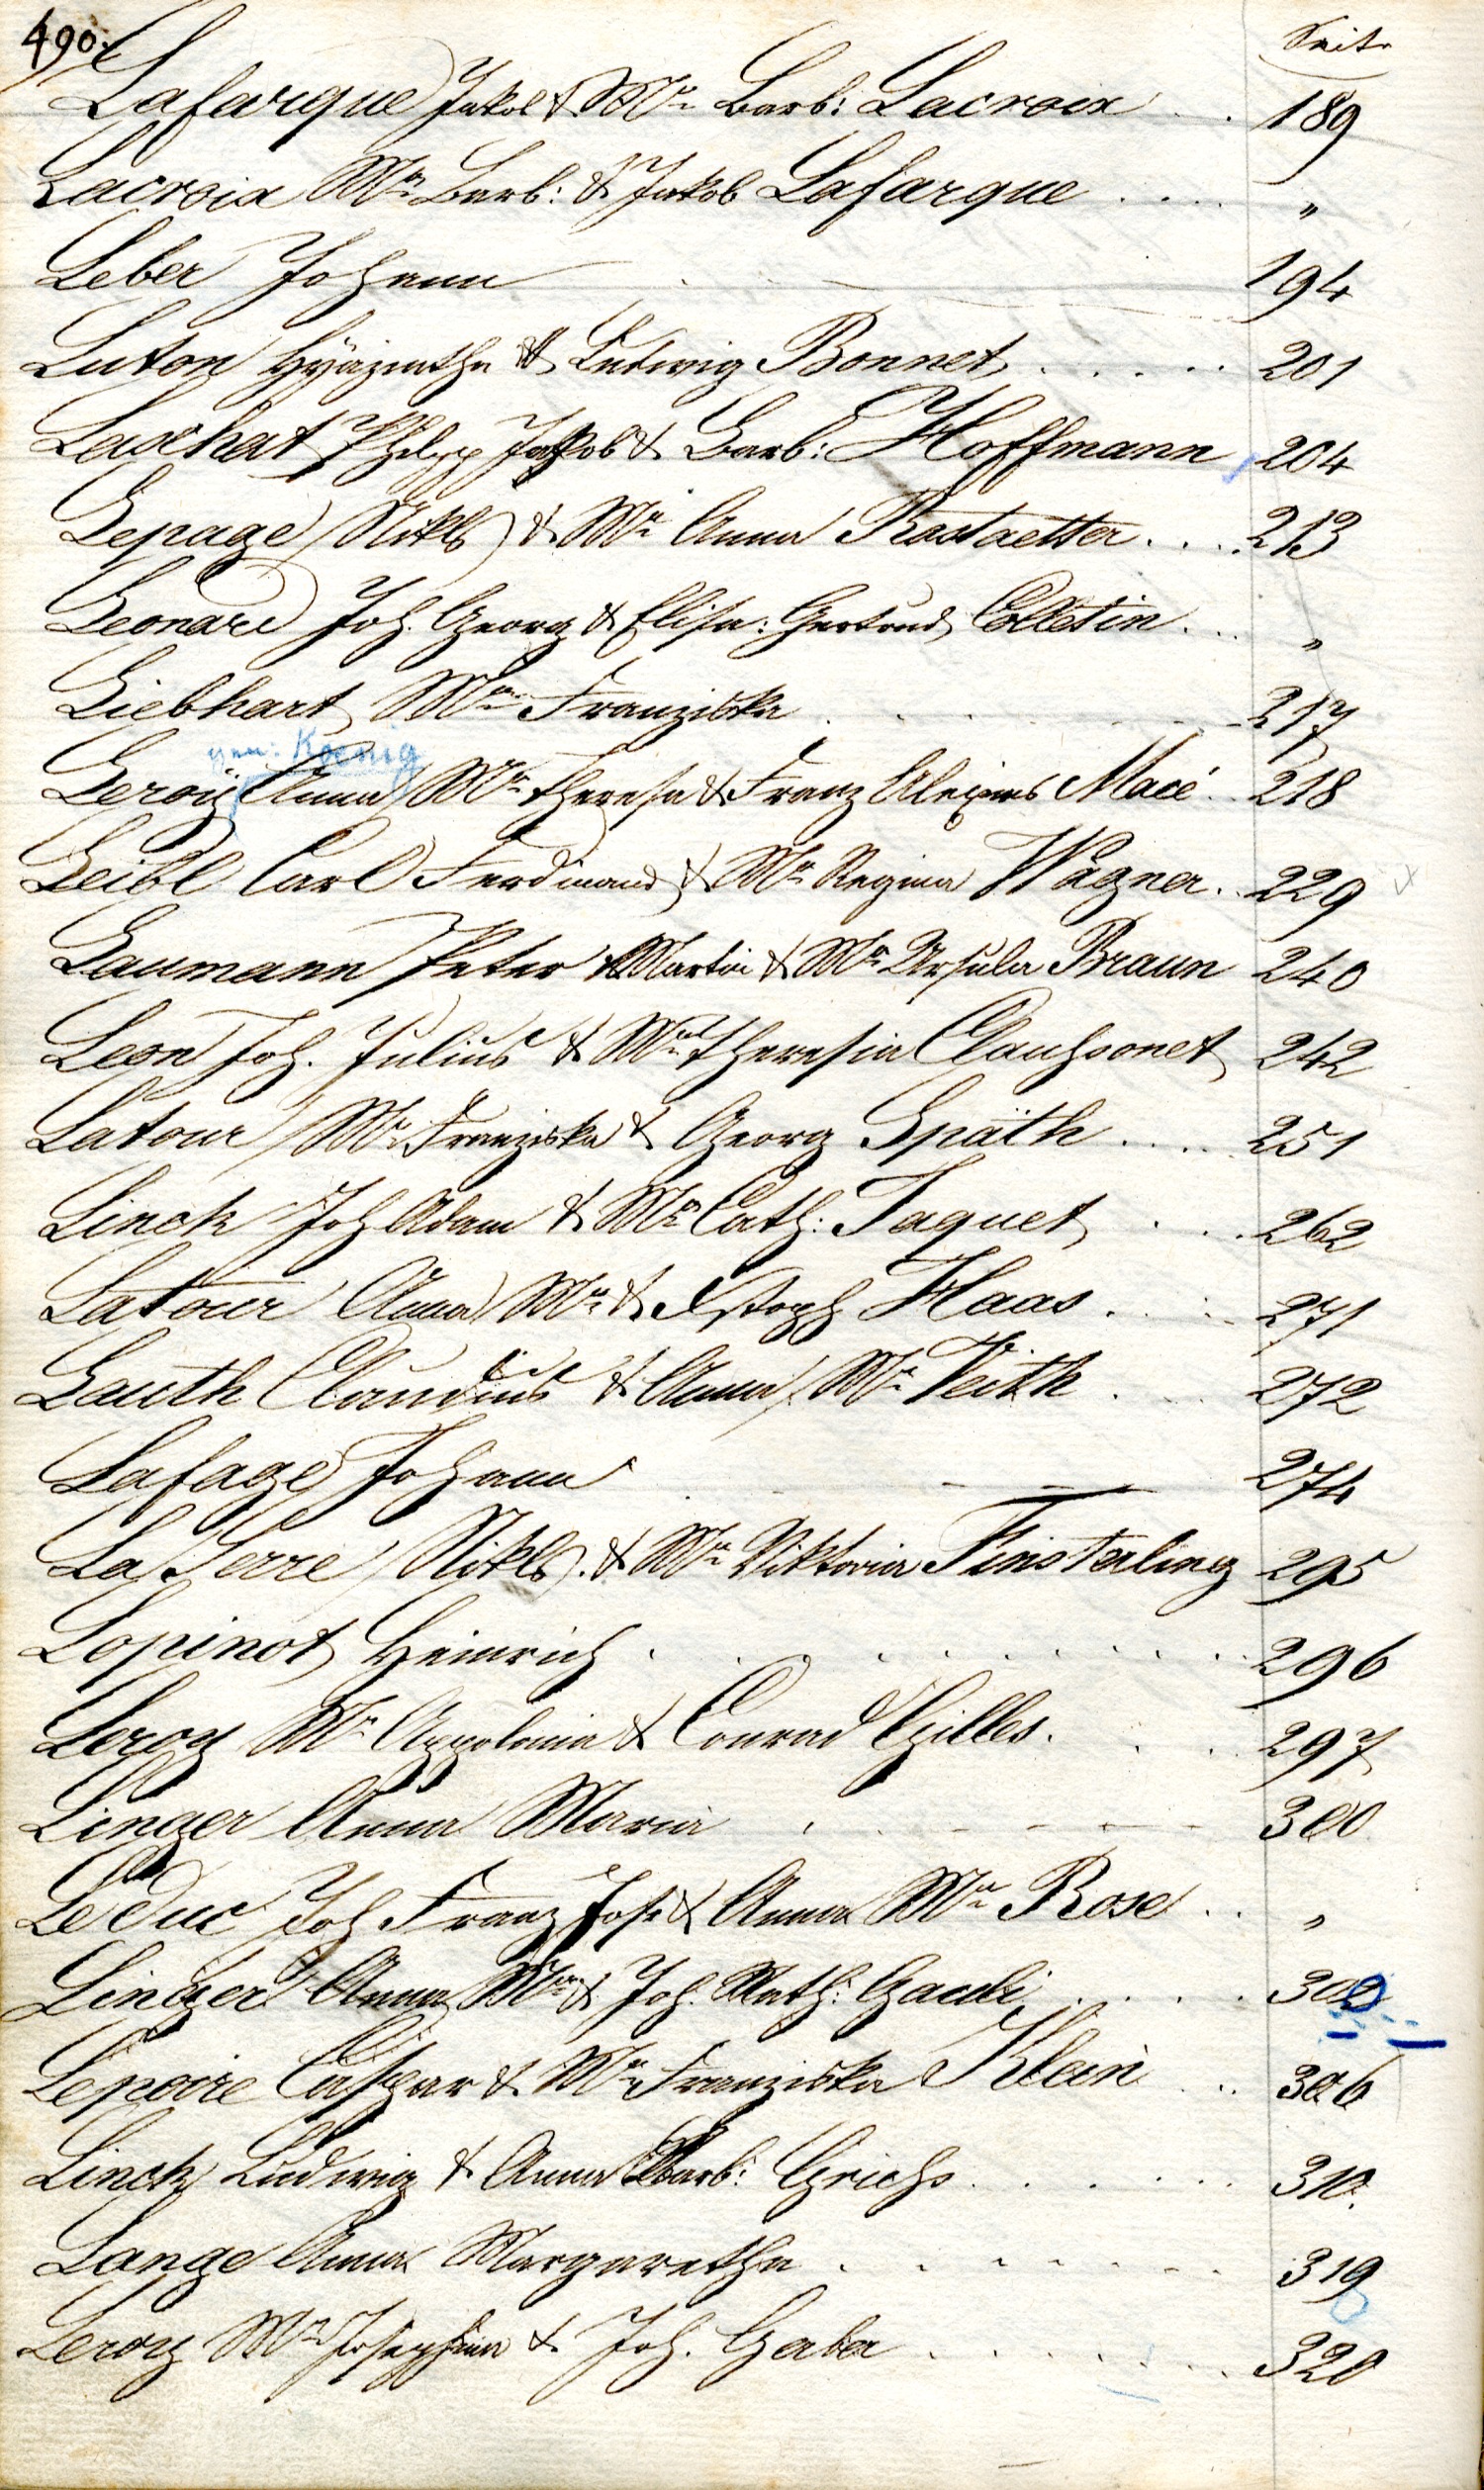 490. Seite
Lafarque Jakob & Mᵃ Barb: Lacroix . . 189
Lacroix Mᵃ Barb: & Jakob Lafarque . . . . "
Leber Johann 194
Luton Hyázinthe & Ludwig Bonnet . . . . . 201
Laschat Philipp Jakob & Barb: Hoffmann 204
Lepage Nikls & Mᵃ Anna Rastaetter . . . . 213
Leonard Joh. Georg & Elisa: Gertrud Colletin . . . "
Liebhart Mᵃ Franziska . . . . . . 217
gen: Koenig
Leroÿ Anna Mᵃ Theresa & Franz Alexius Macé . 218
Leibl Carl Ferdinand & Mᵃ Regina Wagner . . 229
Laumann Peter Martin & Mᵃ Ursula Braun 240
Leon Joh. Julius & Mᵃ Theresia 242
Latour Mᵃ Franziska & Georg Späth . . . . 251
Linck Joh Adam & Mᵃ Cath: Jaquet . . . 262
Latour Anna Mᵃ & Xstoph Haas . . . . 271
Lauth Claudius & Anna Mᵃ Veith . . . 272
Lafage Johann 274
La Serre Nikls. & Mᵃ Viktoria Finsterling 295
Lopinot Heinrich . . . . . . . . . 296
Leroy Mᵃ Appolonia & Conrad Gilles . . . 297
Linger Anna Maria . . . . . . 300
Le Duc Joh Franz Jos: & Anna Mᵃ Rose . . "
Linger Anna Mᵃ & Joh. Math: . . . . . 300
Lepoire Caspar & Mᵃ Franziska Klein . . 306
Linck Ludwig & Anna Barb: . . . . . 310.
Lange Anna Margaretha . . . . . . 319
Leroy Mᵃ Josephina & Joh. Gaber . . . . . . . 320